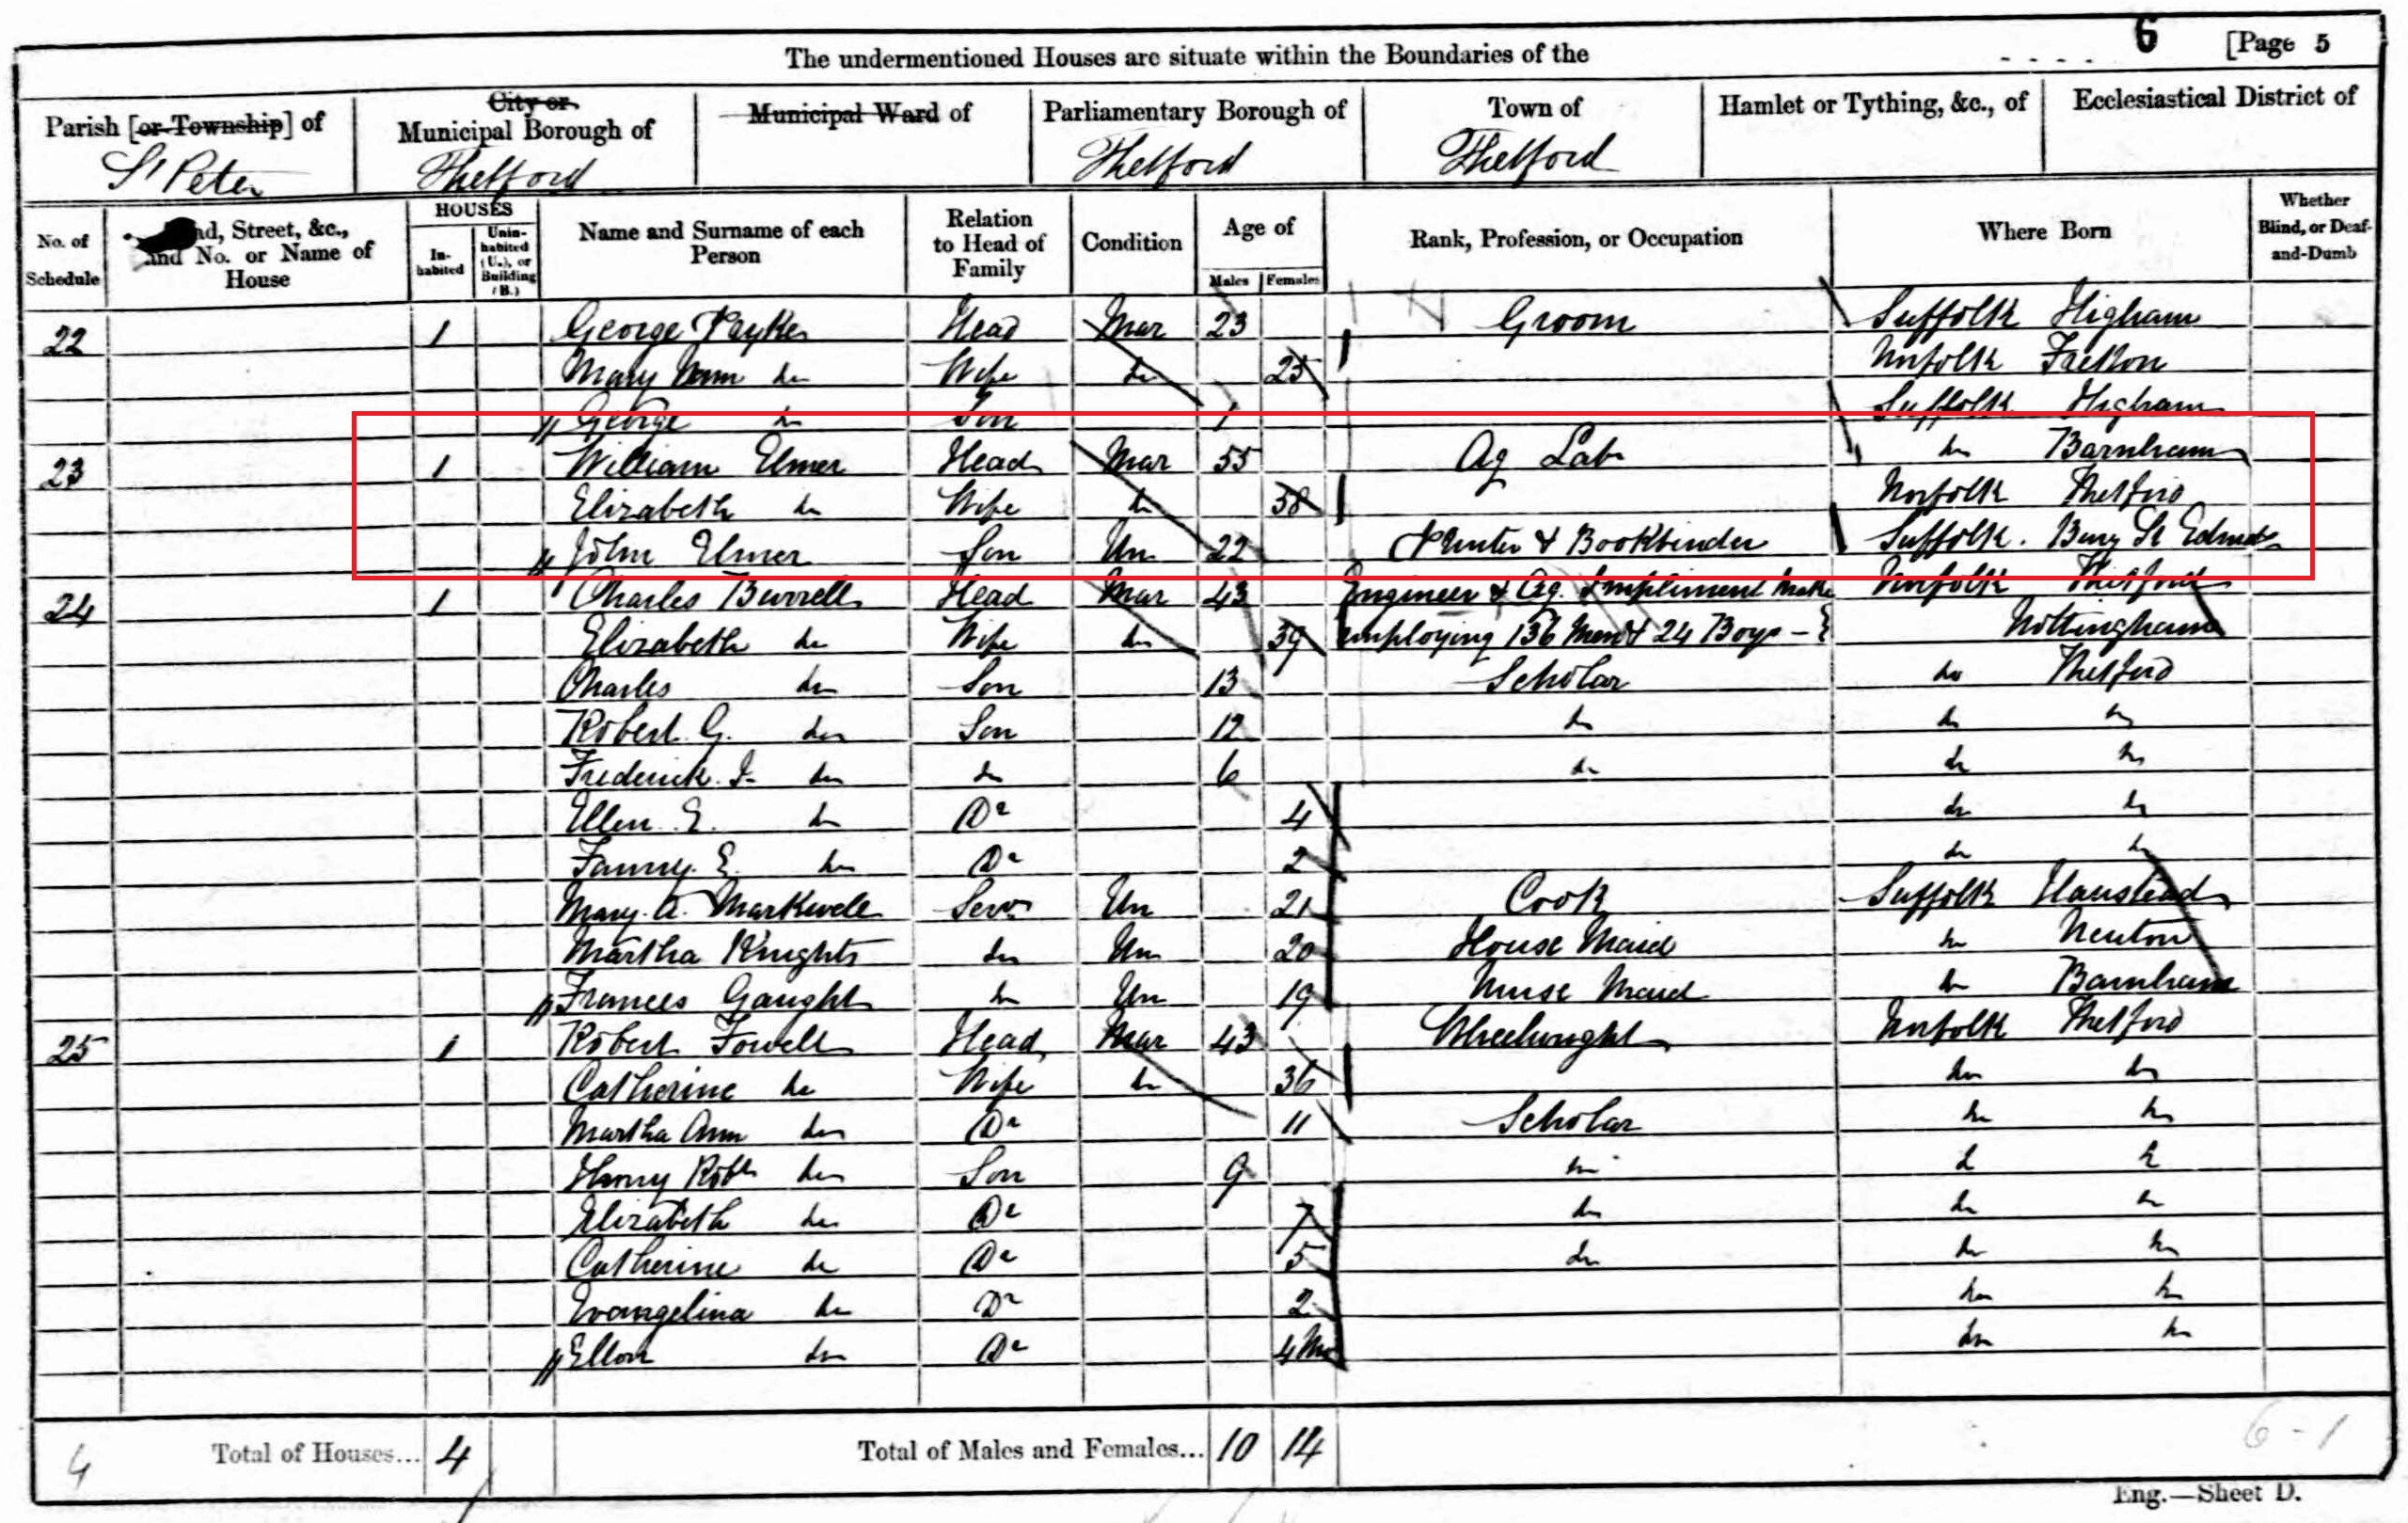 6 [Page 5
The undermentioned Houses are situate within the Boundaries of the
Parish [or Township] of
City or Municipal Borough of
Municipal Ward of
Parliamentary Borough of
Town of
Hamlet or Tything, &c., of
Ecclesiastical District of
St Peter Thetford Thetford Thetford
No. of Schedule
Street, &c., and No. or Name of House
HOUSES
In-habited
Unin-habited (U.), or Building (B.)
Name and Surname of each Person
Relation to Head of Family
Condition
Age of
Males Females
Rank, Profession, or Occupation
Where Born
Whether Blind, or Deaf-and-Dumb
22 1 George Head Mar 23 Groom Suffolk Higham
Mary Ann do Wife do 25 Norfolk
George do Son 1 Suffolk Higham
23 1 William Elmer Head Mar 55 Ag Lab do Barnham
Elizabeth do Wife do 58 Norfolk Thetford
John Elmer Son Un 22 Printer & Bookbinder Suffolk. Bury St Edmds
24 1 Charles Burrell Head Mar 43 Engineer & Ag. Impliment Maker Norfolk Thetford
Elizabeth do Wife do 39 employing 136 Men & 24 Boys - Nottingham
Charles do Son 13 Scholar do Thetford
Robert G. do Son 12 do do do
Frederick J. do do 6 do do do
Ellen E. do Dr 4 do do
Fanny. E. do Dr 2 do do
Mary. A. Markwell Serv Un 21 Cook Suffolk Hanstead
Martha Knights do Un 20 House Maid do Newton
Frances Gaught do Un 19 Nurse Maid do Barnham
25 1 Robert Fowell Head Mar 43 Wheelwright Norfolk Thetford
Catherine do Wife do 36 do do
Martha Ann do Dr 11 Scholar do do
Henry Robt do Son 9 do do do
Elizabeth do Dr 7 do do do
Catherine do Dr 5 do do do
Evangelina do Dr 2 do do
Ellen do Dr 4 Mo do do
4 Total of Houses... 4 Total of Males and Females... 10 14 6-1
Eng.—Sheet D.